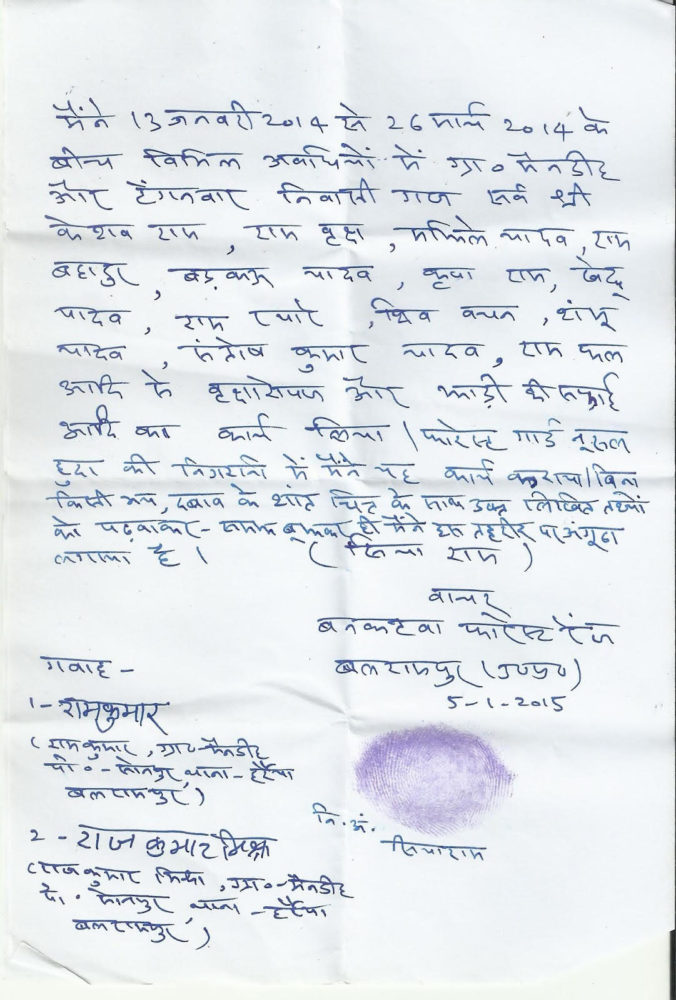 मैंने 13 जनवरी 2014 से 26 मार्च 2014 के
बीच विभिन्न अवधियों में ग्रा० मैनडीह
और टेंगनवार निवासी गण सर्व श्री
केशव राम, राम वृक्ष, मझिले यादव, राम
बहादुर, बड़कऊ यादव, कृपा राम, खेदू
यादव, राम प्यारे, शिव वचन, शंभू
यादव, संतोष कुमार यादव, राम फल
आदि से वृक्षारोपण और झाड़ी की सफाई
आदि का कार्य लिया। फारेस्ट गार्ड नूरुल
हुदा की निगरानी में मैंने यह कार्य कराया। बिना
किसी भय, दबाव के शांत चित्त के साथ उक्त लिखित तथ्यों
को पढ़वाकर - समझ बूझकर ही मैंने इस तहरीर पर अंगूठा
लगाया है। (सिया राम)
वाचर
बनकटवा फारेस्ट रेंज
बलरामपुर (उ०प्र०)
5-1-2015
गवाह -
1 - रामकुमार
(रामकुमार, ग्रा०-मैनडीह
पो०-सोनपुर, थाना-हर्रैया
बलरामपुर)
नि. अं.
सियाराम
2 - राज कुमार मिश्रा
(राजकुमार मिश्रा, ग्रा०-मैनडीह
पो. सोनपुर, थाना-हर्रैया
बलरामपुर)